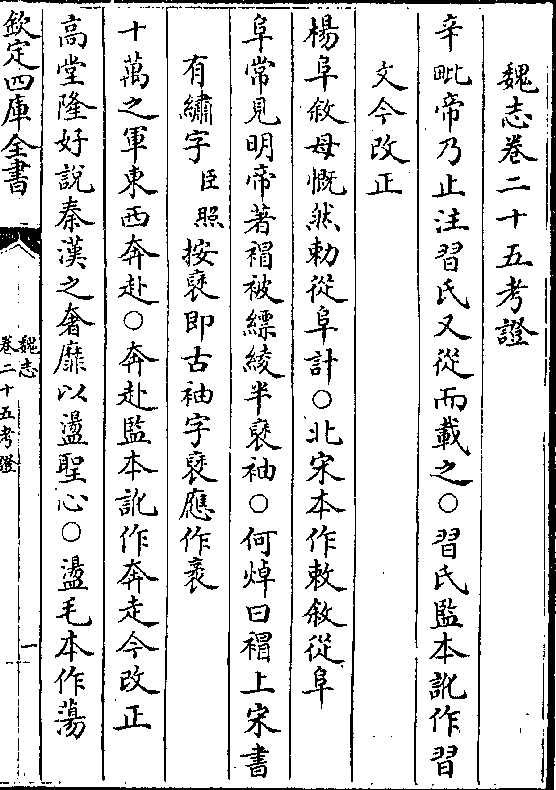 魏志卷二十五考證
辛毗帝乃止注習氏又從而載之○習氏監本訛作習
文今改正
楊阜敘母慨然勅從阜計○北宋本作敕敘從阜
阜常見明帝著㡌被縹綾半褎袖○何焯曰㡌上宋書
有繡字臣照按褎即古袖字褎應作袠
十萬之軍東西奔赴○奔赴監本訛作奔走今改正
高堂隆好說秦漢之奢靡以盪聖心○盪毛本作蕩
欽定四庫全書
魏志
卷二十五考證
一